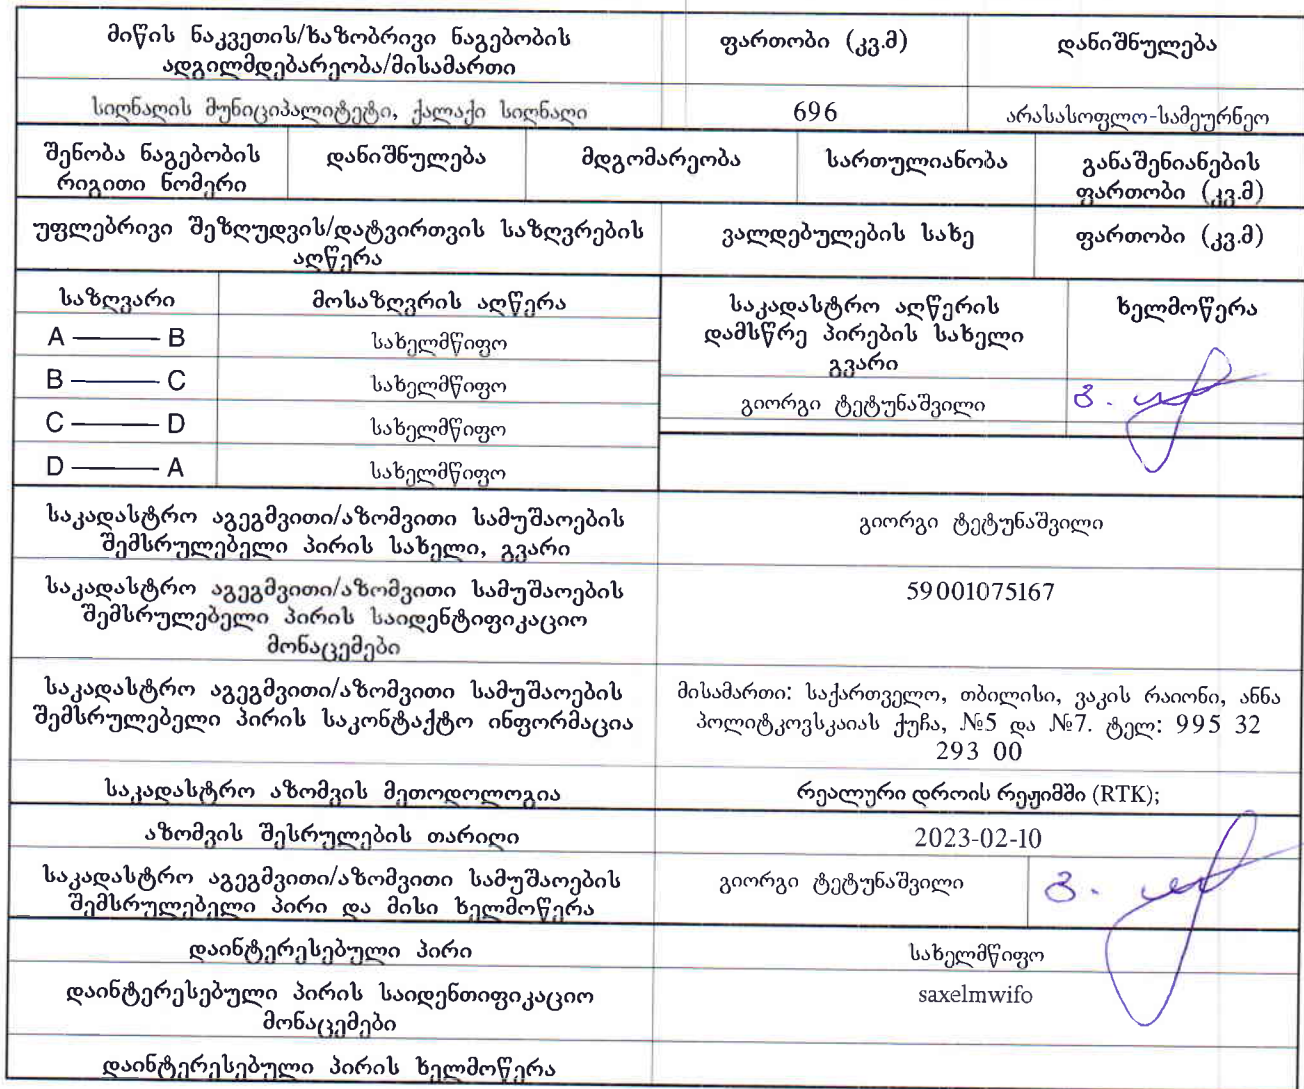 მიწის ნაკვეთის/ხაზობრივი ნაგებობის
ადგილმდებარეობა/მისამართი
ფართობი (კვ.მ)
დანიშნულება
სიღნაღის მუნიციპალიტეტი, ქალაქი სიღნაღი
696
არასასოფლო-სამეურნეო
შენობა ნაგებობის
რიგითი ნომერი
დანიშნულება
მდგომარეობა
სართულიანობა
განაშენიანების
ფართობი (კვ.მ)
უფლებრივი შეზღუდვის/დატვირთვის საზღვრების
აღწერა
ვალდებულების სახე
ფართობი (კვ.მ)
საზღვარი
მოსაზღვრის აღწერა
A —— B
სახელმწიფო
B —— C
სახელმწიფო
C —— D
სახელმწიფო
D —— A
სახელმწიფო
საკადასტრო აღწერის
დამსწრე პირების სახელი
გვარი
ხელმოწერა
გიორგი ტეტუნაშვილი
საკადასტრო აგეგმვითი/აზომვითი სამუშაოების
შემსრულებელი პირის სახელი, გვარი
გიორგი ტეტუნაშვილი
საკადასტრო აგეგმვითი/აზომვითი სამუშაოების
შემსრულებელი პირის საიდენტიფიკაციო
მონაცემები
59001075167
საკადასტრო აგეგმვითი/აზომვითი სამუშაოების
შემსრულებელი პირის საკონტაქტო ინფორმაცია
მისამართი: საქართველო, თბილისი, ვაკის რაიონი, ანნა
პოლიტკოვსკაიას ქუჩა, №5 და №7. ტელ: 995 32
293 00
საკადასტრო აზომვის მეთოდოლოგია
რეალური დროის რეჟიმში (RTK);
აზომვის შესრულების თარიღი
2023-02-10
საკადასტრო აგეგმვითი/აზომვითი სამუშაოების
შემსრულებელი პირი და მისი ხელმოწერა
გიორგი ტეტუნაშვილი
დაინტერესებული პირი
სახელმწიფო
დაინტერესებული პირის საიდენთიფიკაციო
მონაცემები
saxelmwifo
დაინტერესებული პირის ხელმოწერა